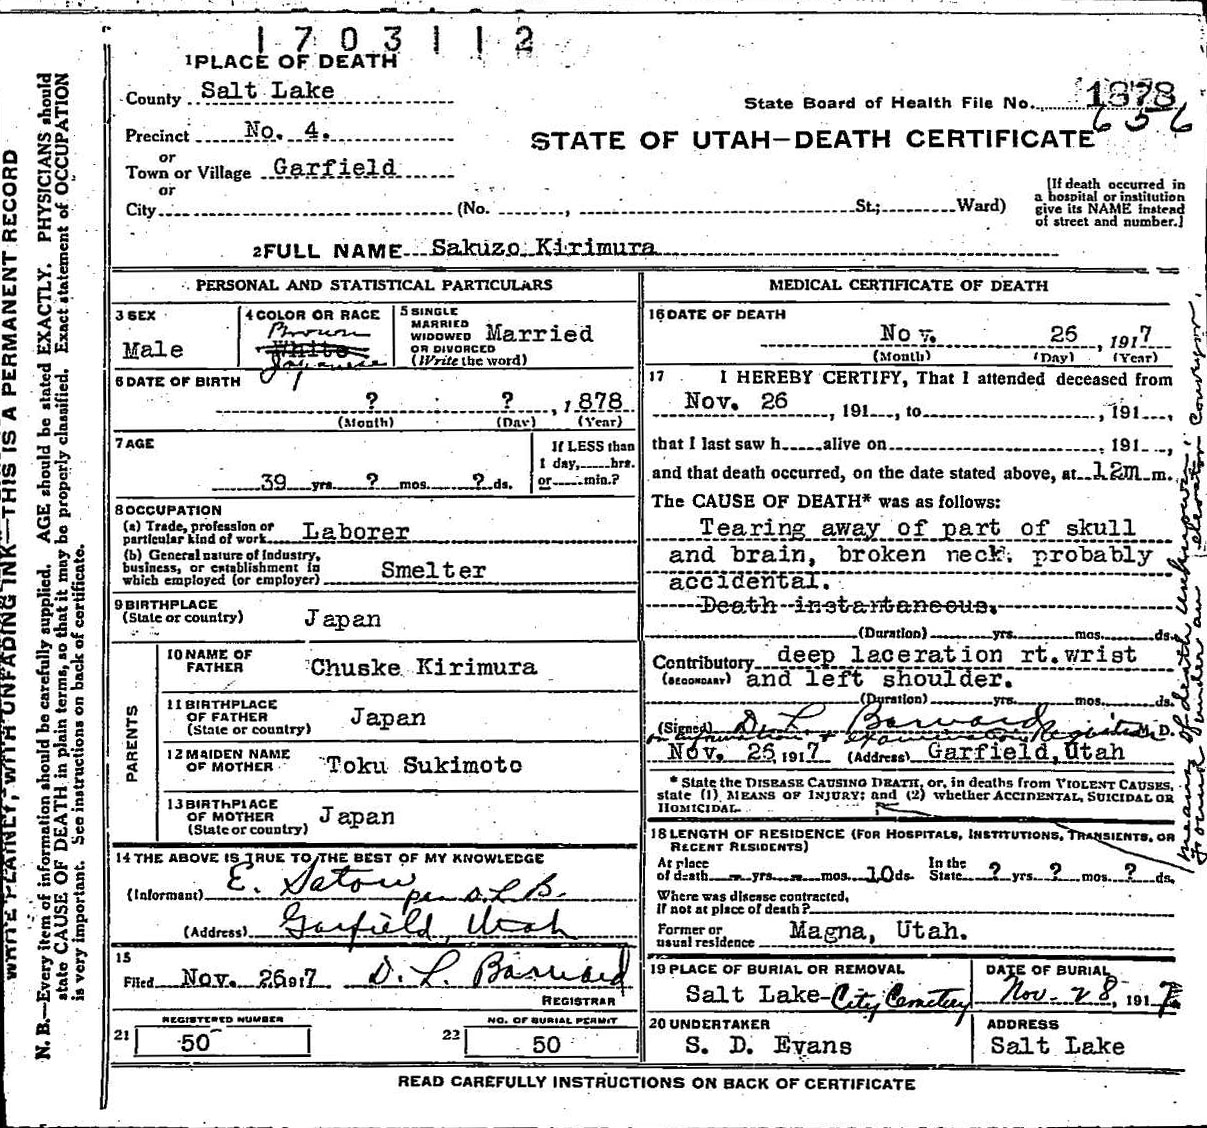 1703112
1 PLACE OF DEATH
County Salt Lake
State Board of Health File No. 1878
656
Precinct No. 4.
STATE OF UTAH—DEATH CERTIFICATE
or
Town or Village Garfield
or
City (No. , St.; Ward)
[If death occurred in
a hospital or institution
give its NAME instead
of street and number.]
2 FULL NAME Sakuzo Kirimura
PERSONAL AND STATISTICAL PARTICULARS
3 SEX
Male
4 COLOR OR RACE
Brown
White
Japanese
5 SINGLE
MARRIED
WIDOWED
OR DIVORCED
(Write the word)
Married
6 DATE OF BIRTH
? ? , 1878
(Month) (Day) (Year)
7 AGE
39 yrs. ? mos. ? ds.
If LESS than
1 day, hrs.
or min.?
8 OCCUPATION
(a) Trade, profession or
particular kind of work Laborer
(b) General nature of Industry,
business, or establishment in
which employed (or employer) Smelter
9 BIRTHPLACE
(State or country) Japan
PARENTS
10 NAME OF
FATHER Chuske Kirimura
11 BIRTHPLACE
OF FATHER
(State or country) Japan
12 MAIDEN NAME
OF MOTHER Toku Sukimoto
13 BIRTHPLACE
OF MOTHER
(State or country) Japan
14 THE ABOVE IS TRUE TO THE BEST OF MY KNOWLEDGE
(Informant) E. Satow per D.L.B.
(Address) Garfield, Utah
15
Filed Nov. 26 1917 D. L. Barnard
REGISTRAR
REGISTERED NUMBER
21 50
NO. OF BURIAL PERMIT
22 50
MEDICAL CERTIFICATE OF DEATH
16 DATE OF DEATH
Nov. 26 , 1917
(Month) (Day) (Year)
17 I HEREBY CERTIFY, That I attended deceased from
Nov. 26 , 191 , to , 191 ,
that I last saw h alive on , 191 ,
and that death occurred, on the date stated above, at 12m m.
The CAUSE OF DEATH* was as follows:
Tearing away of part of skull
and brain, broken neck. probably
accidental.
Death instantaneous.
(Duration) yrs. mos. ds.
Contributory deep laceration rt.wrist
(SECONDARY) and left shoulder.
(Duration) yrs. mos. ds.
(Signed) D. L. Barnard M. D.
Registrar
Nov. 26, 1917 (Address) Garfield, Utah
* State the DISEASE CAUSING DEATH, or, in deaths from VIOLENT CAUSES,
state (1) MEANS OF INJURY; and (2) whether ACCIDENTAL, SUICIDAL OR
HOMICIDAL.
18 LENGTH OF RESIDENCE (FOR HOSPITALS, INSTITUTIONS, TRANSIENTS, OR
RECENT RESIDENTS)
At place
of death – yrs. – mos. 10 ds. In the
State ? yrs. ? mos. ? ds.
Where was disease contracted,
If not at place of death?
Former or
usual residence Magna, Utah.
19 PLACE OF BURIAL OR REMOVAL
Salt Lake-City Cemetery
DATE OF BURIAL
Nov. 28, 1917
20 UNDERTAKER
S. D. Evans
ADDRESS
Salt Lake
READ CAREFULLY INSTRUCTIONS ON BACK OF CERTIFICATE
WRITE PLAINLY, WITH UNFADING INK—THIS IS A PERMANENT RECORD
N. B.—Every item of information should be carefully supplied. AGE should be stated EXACTLY. PHYSICIANS should
state CAUSE OF DEATH in plain terms, so that it may be properly classified. Exact statement of OCCUPATION
is very important. See instructions on back of certificate.
means of death unknown.
Found under an elevator conveyor.